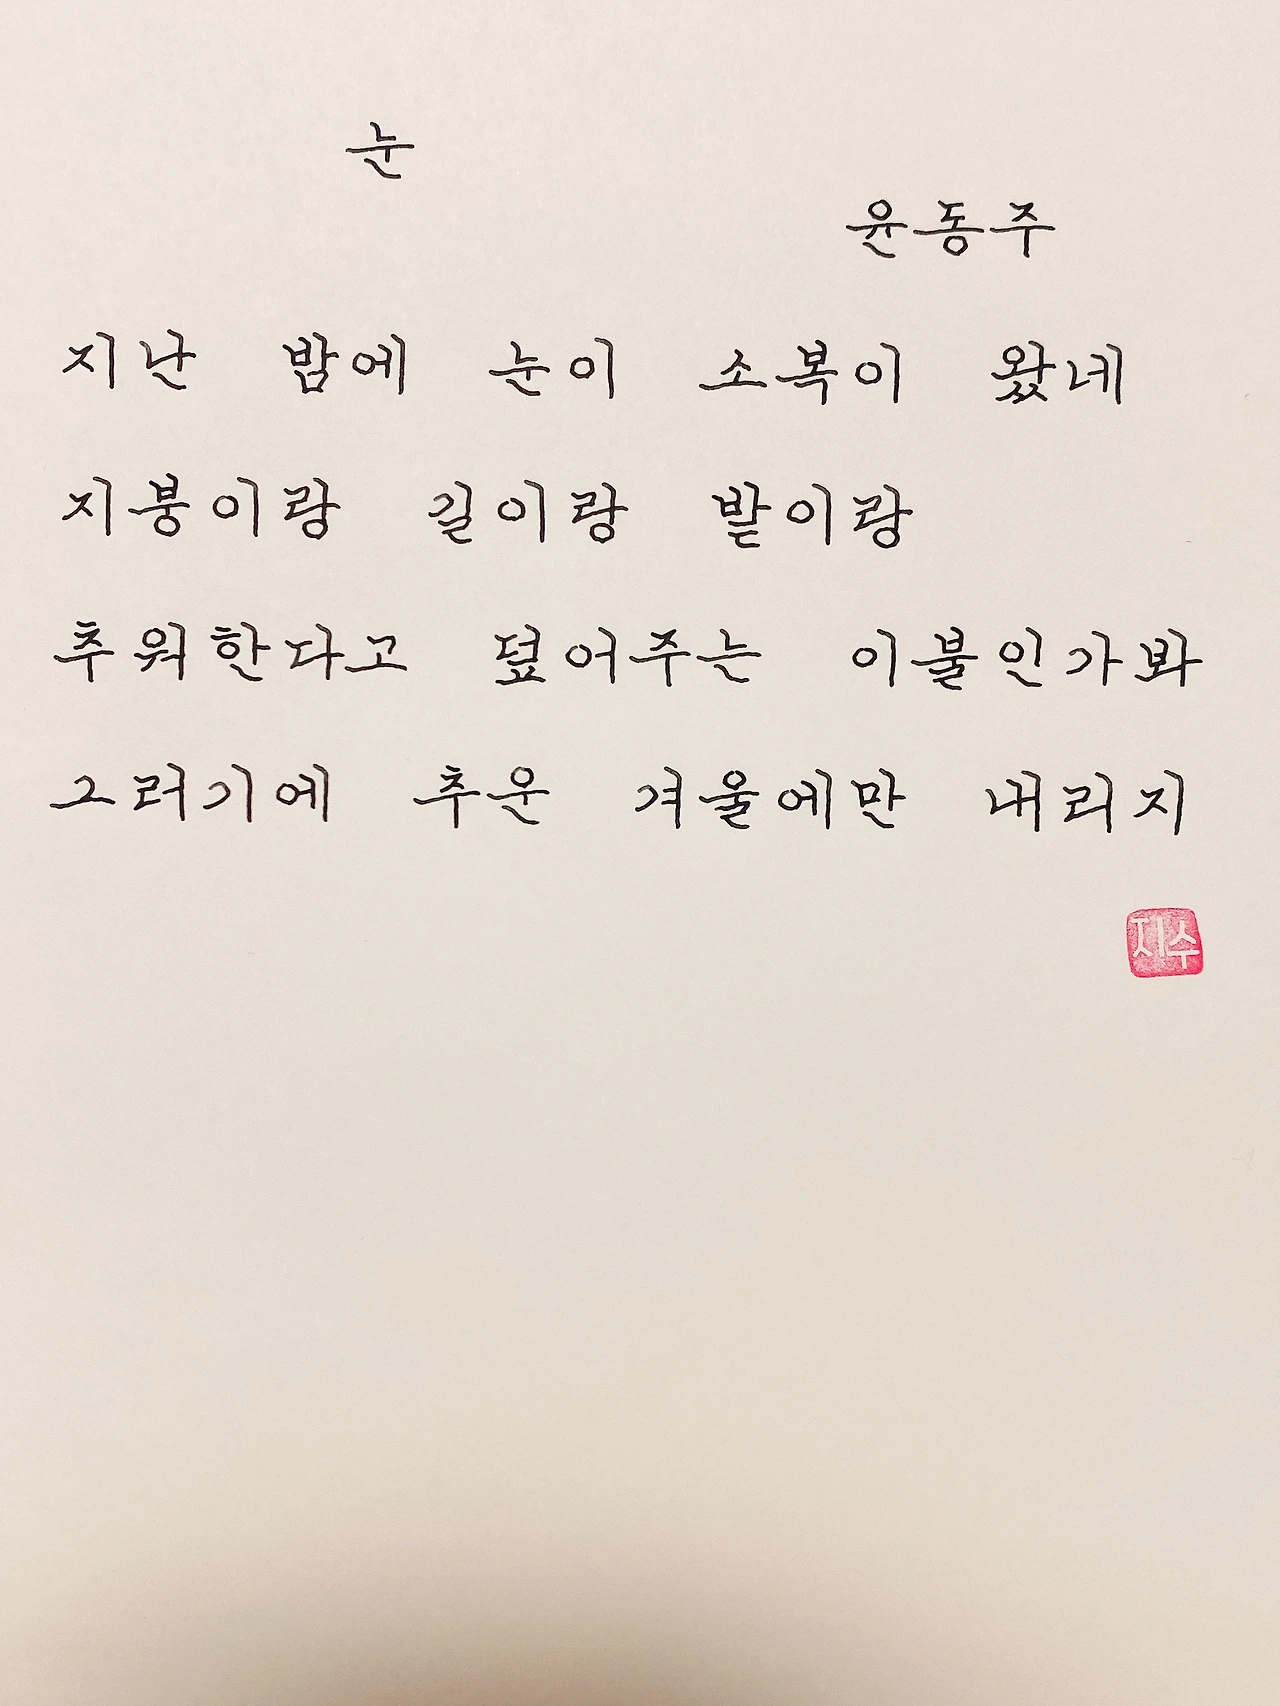 눈
윤동주
지난 밤에 눈이 소복이 왔네
지붕이랑 길이랑 밭이랑
추워한다고 덮어주는 이불인가봐
그러기에 추운 겨울에만 내리지
지수